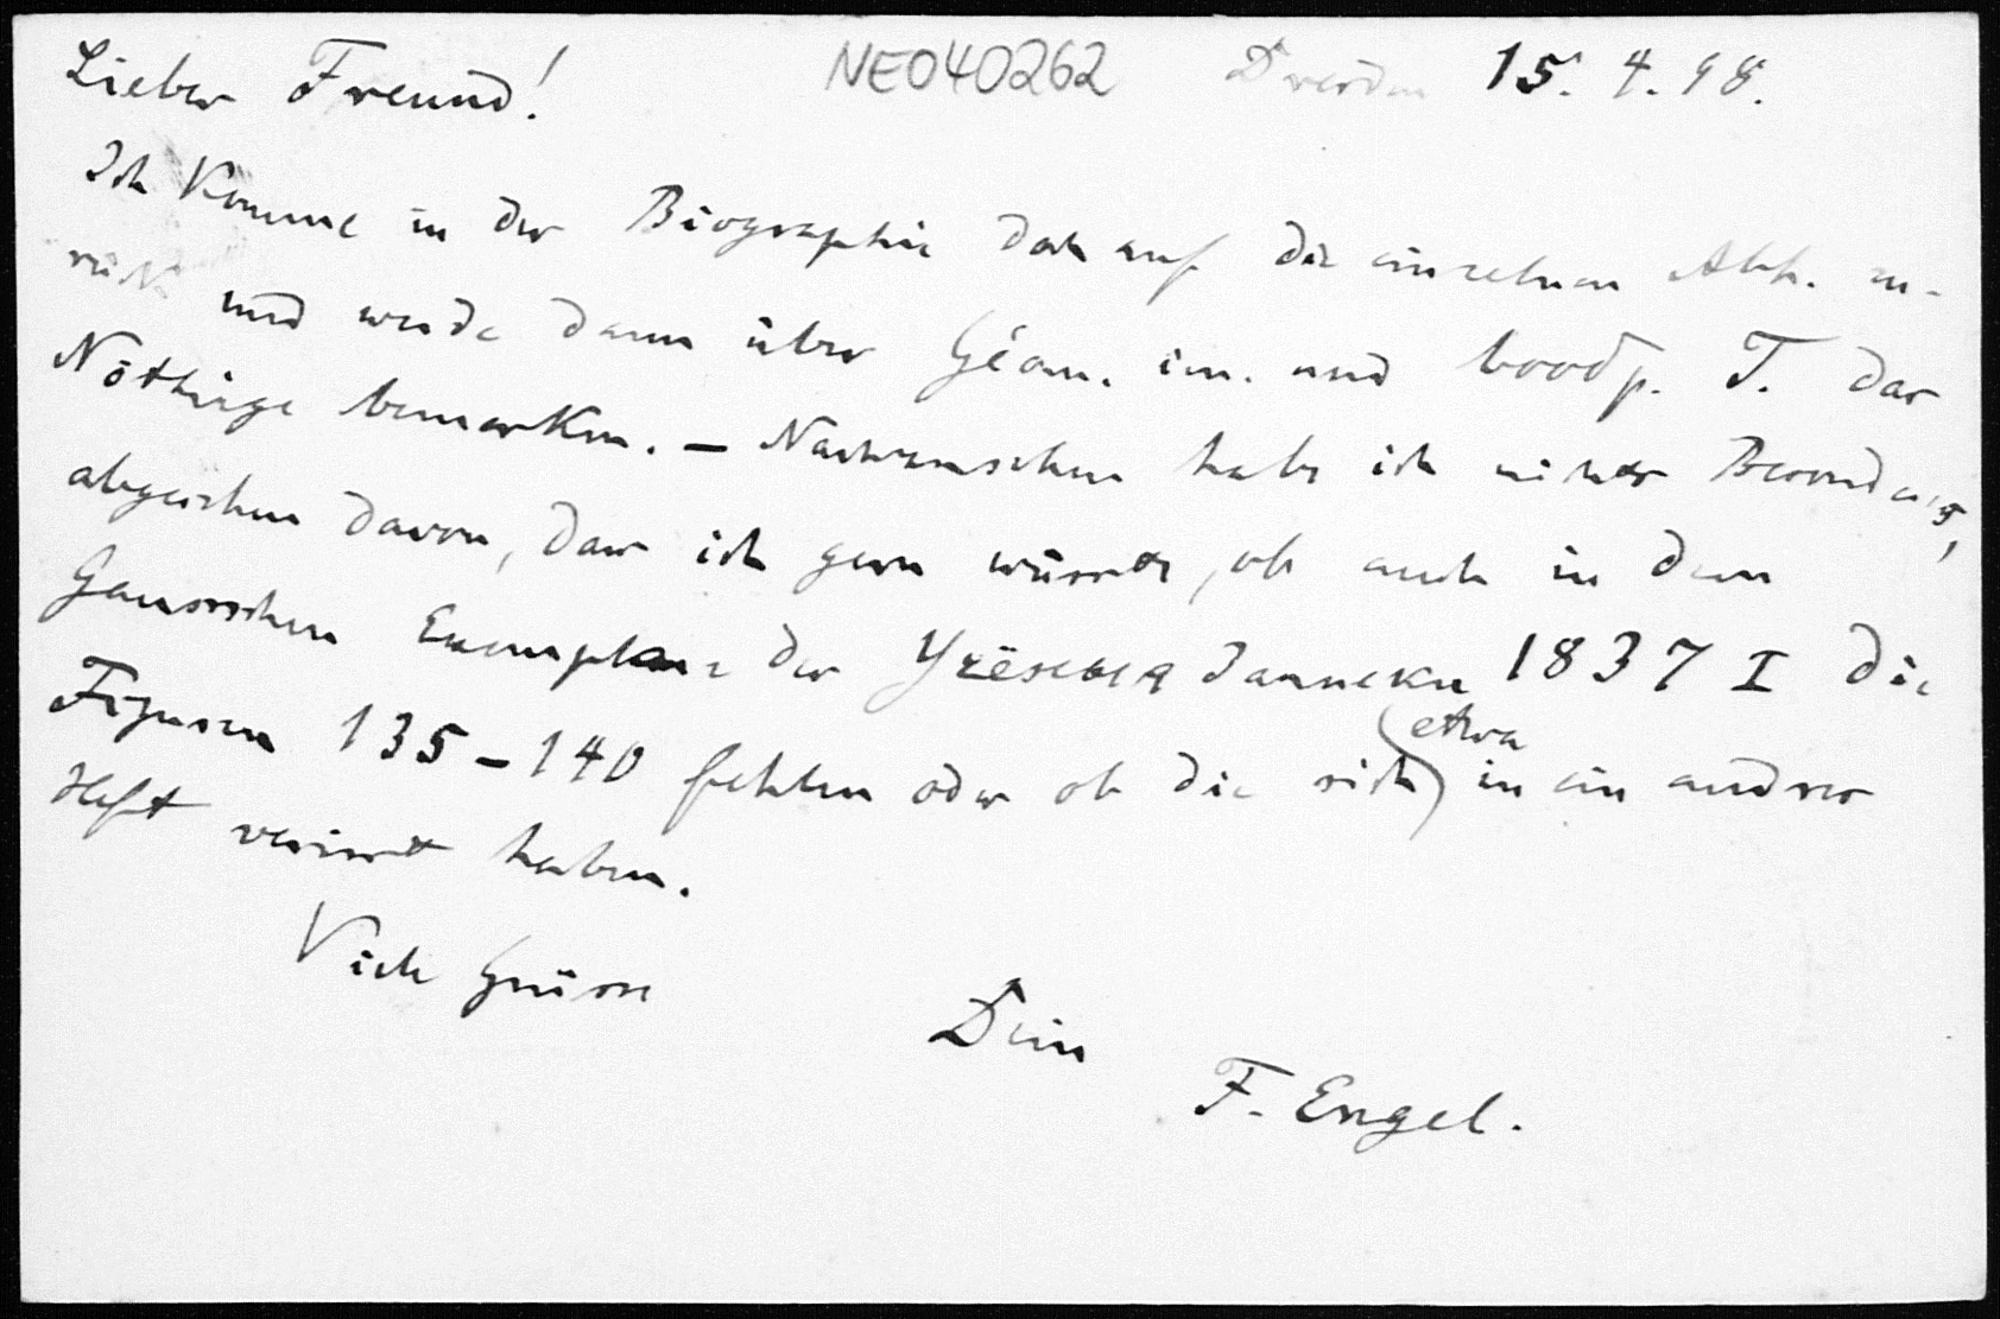 Lieber Freund! NE040262 Dresden 15. 4. 98.
Ich komme in der Biographie doch auf die einzelnen Abh. zu-
rück und werde dann über Géom. im. und voobr. T. das
Nöthige bemerken. – Nachzusehen habe ich nichts Besonderes,
abgesehen davon, dass ich gern wüsste, ob auch in dem
Gaussschen Exemplare der Учёныя Записки 1837 I die
Figuren 135–140 fehlen oder ob die sich etwa in ein andres
Heft verirrt haben.
Viele Grüsse
Dein
F. Engel.